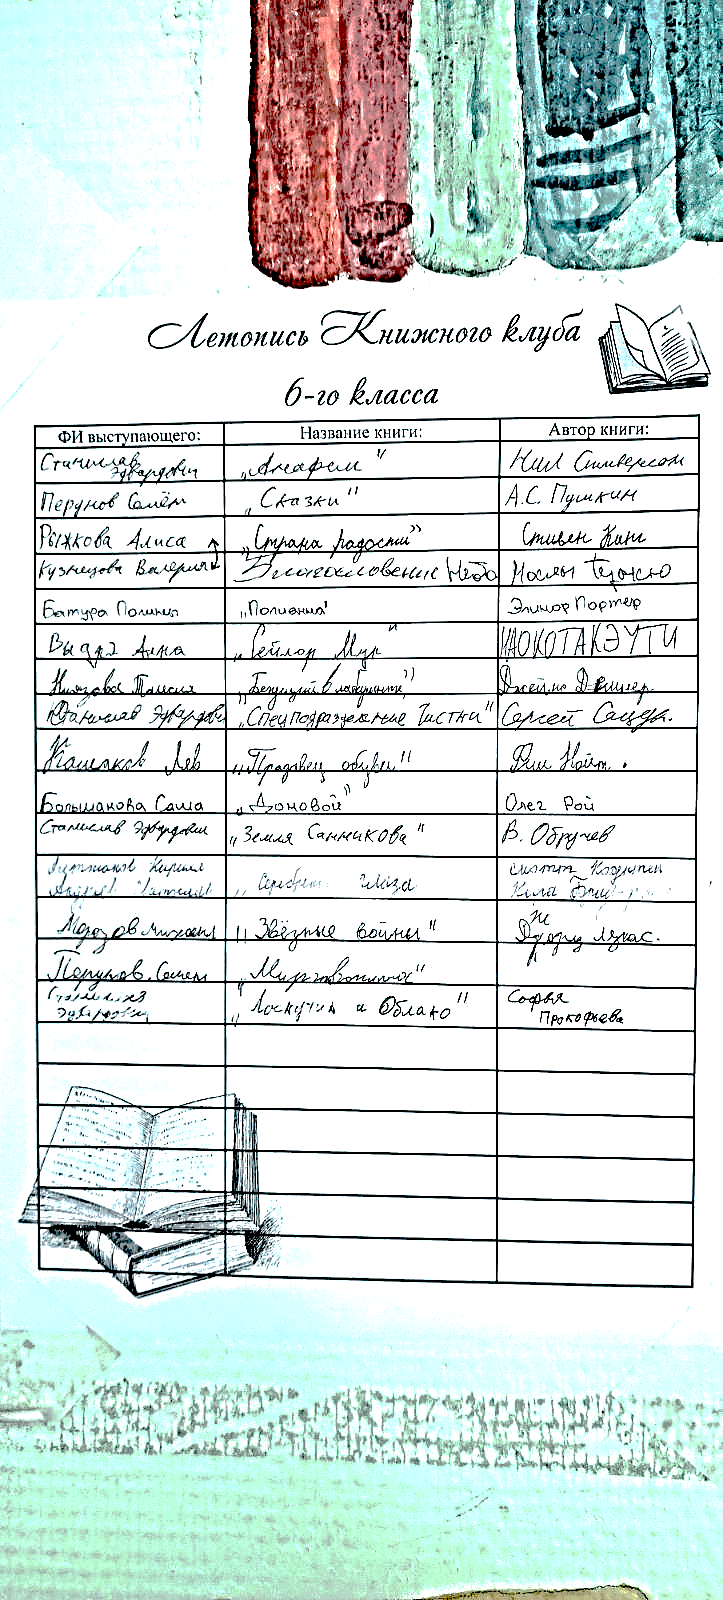 Летопись Книжного клуба
6-го класса
ФИ выступающего: Название книги: Автор книги:
Станислав Эдвардович „Анафем" Нил Стивенсон
Перунов Семён „Сказки" А.С. Пушкин
Рыжкова Алиса „Страна радости" Стивен Кинг
Кузнецова Валерия Благословение Неба Мосян Тунсю
Батура Полина „Полианна" Элинор Портер
Выдрэ Анна „Сейлор Мун" НАОКОТАКЭУТИ
Таисия „Бегущий в лабиринте" Джеймс Дэшнер.
Станислав Эдвардович „Спецподразделение Чистки" Сергей
Лев „Продавец обуви" Фил Найт.
Большакова Саша „Домовой" Олег Рой
Станислав Эдвардович „Земля Санникова" В. Обручев
Кирилл „ глаза Скотт
Морозов Михаил „Звёздные войны" Джордж Лукас.
Перунов. Семен
Станислав Эдвардович „Лоскутик и Облако" Софья
Прокофьева